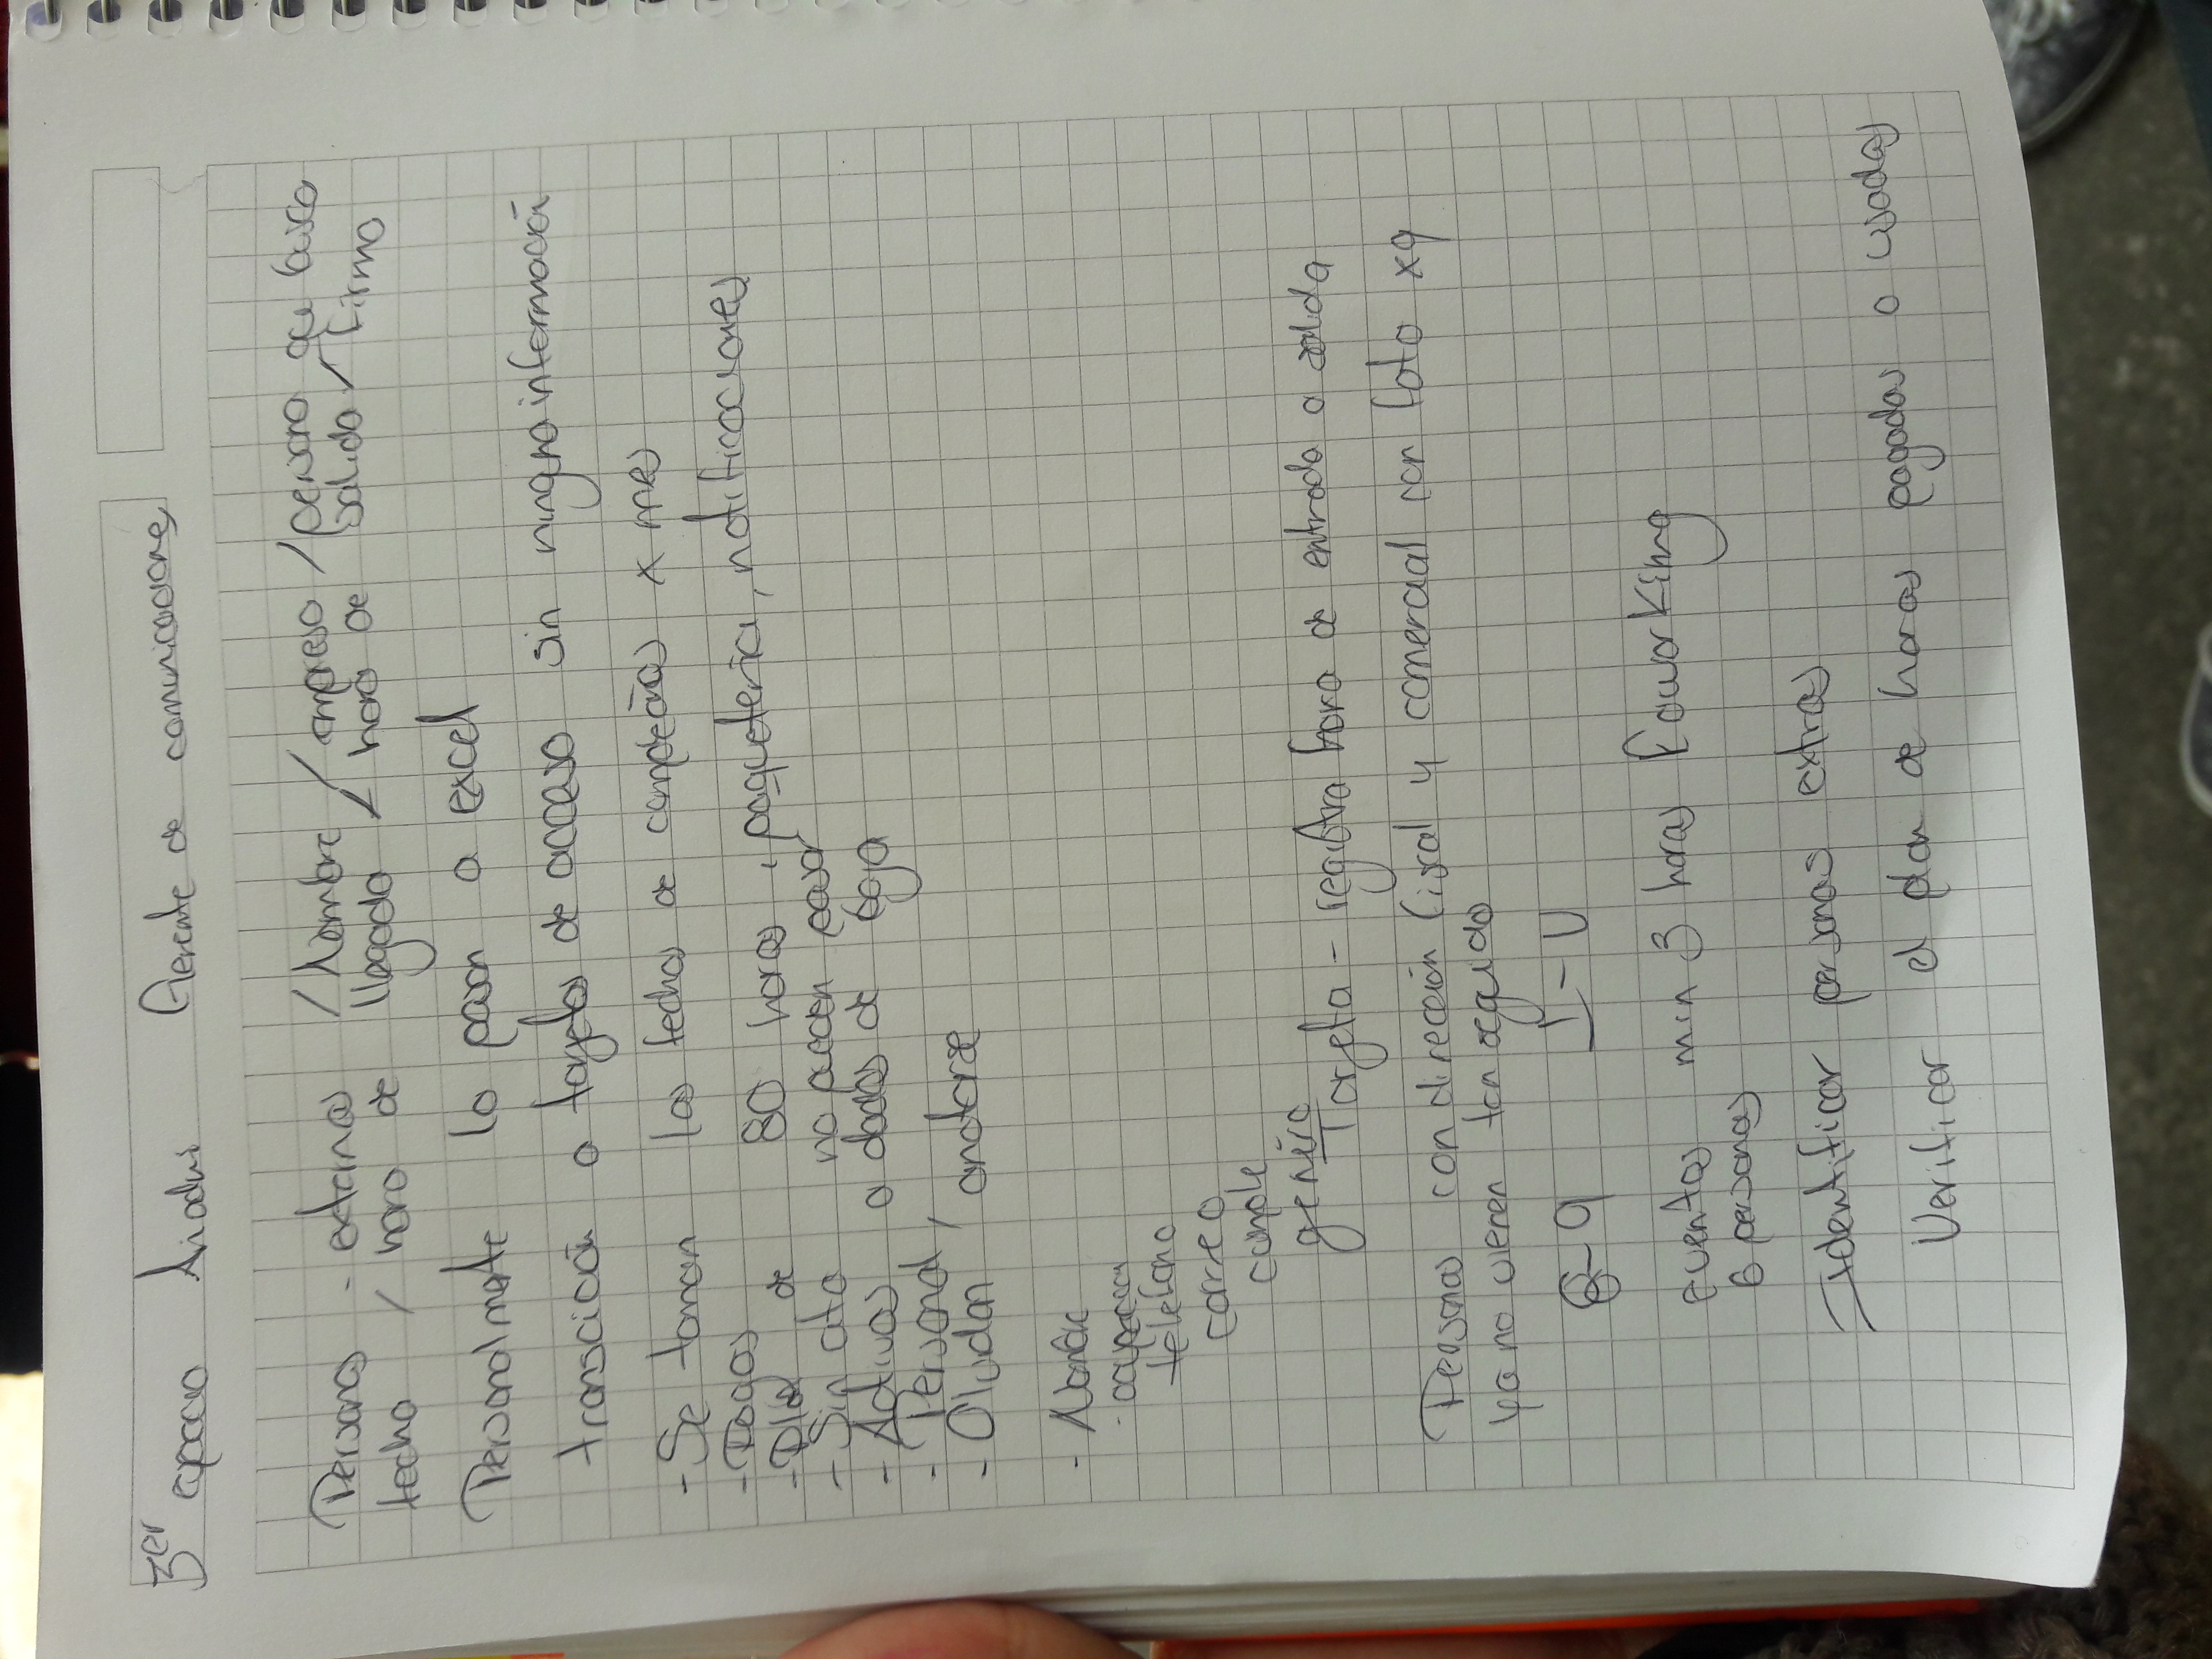 3er espacio Ariadni Gerente de comunicaciones
Personas - externas / Nombre / empresa / persona que busca
fecha / hora de llegada / hora de salida / firma
Personalmente lo pasan a excel
transcición a tarjetas de acceso sin ninguna información
- Se toman las fechas de x mes
- Pagos
- Plan de 80 horas, paquetería, notificaciones
- Sin cita no pueden pasar
- Activos o dados de baja
- Personal,
- Olvidan anotarse
- Nombre
- ocupación
teléfono
correo
cumple
genero
Tarjeta - registra hora de entrada o salida
Personas con dirección fiscal y comercial con foto xq
ya no vienen tan seguido
8-9 L-V
eventos min 3 horas Coworking
6 personas
Identificar personas extras
Verificar el plan de horas pagadas o usadas